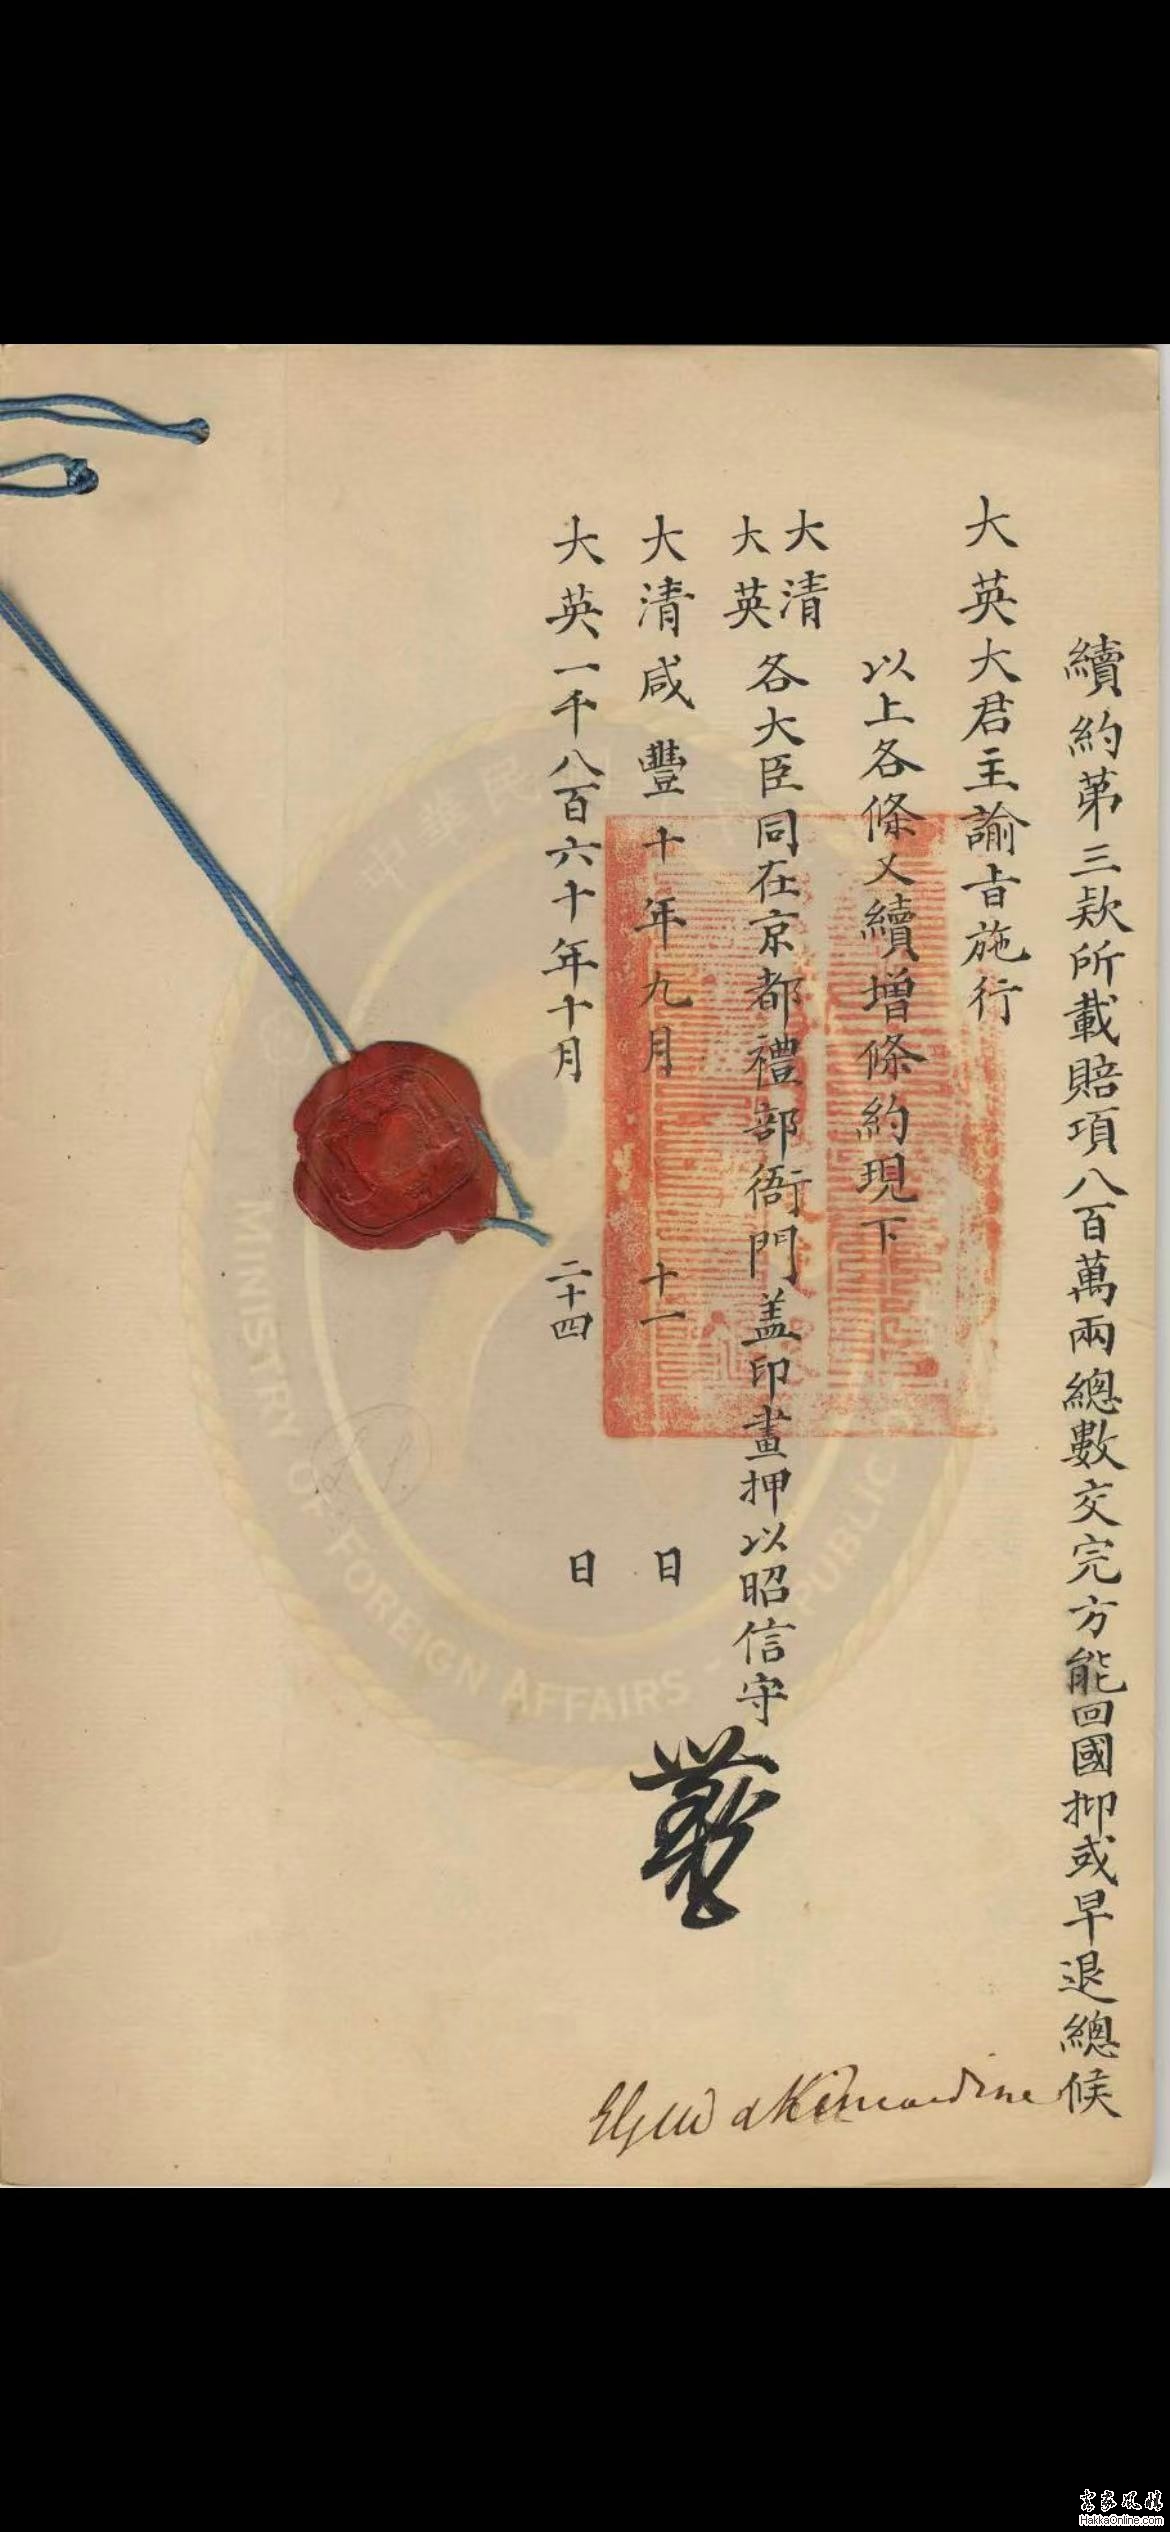 續約第三款所載賠項八百萬兩總數交完方能回國抑或早退總候
大英大君主諭旨施行
以上各條又續增條約現下
大清
大英
各大臣同在京都禮部衙門盖印畫押以昭信守
大清咸豐十年九月十一日
大英一千八百六十年十月二十四日
Elgin & Kincardine
中華民國
MINISTRY OF FOREIGN AFFAIRS - PUBLIC
客家風情
HakkaOnline.com